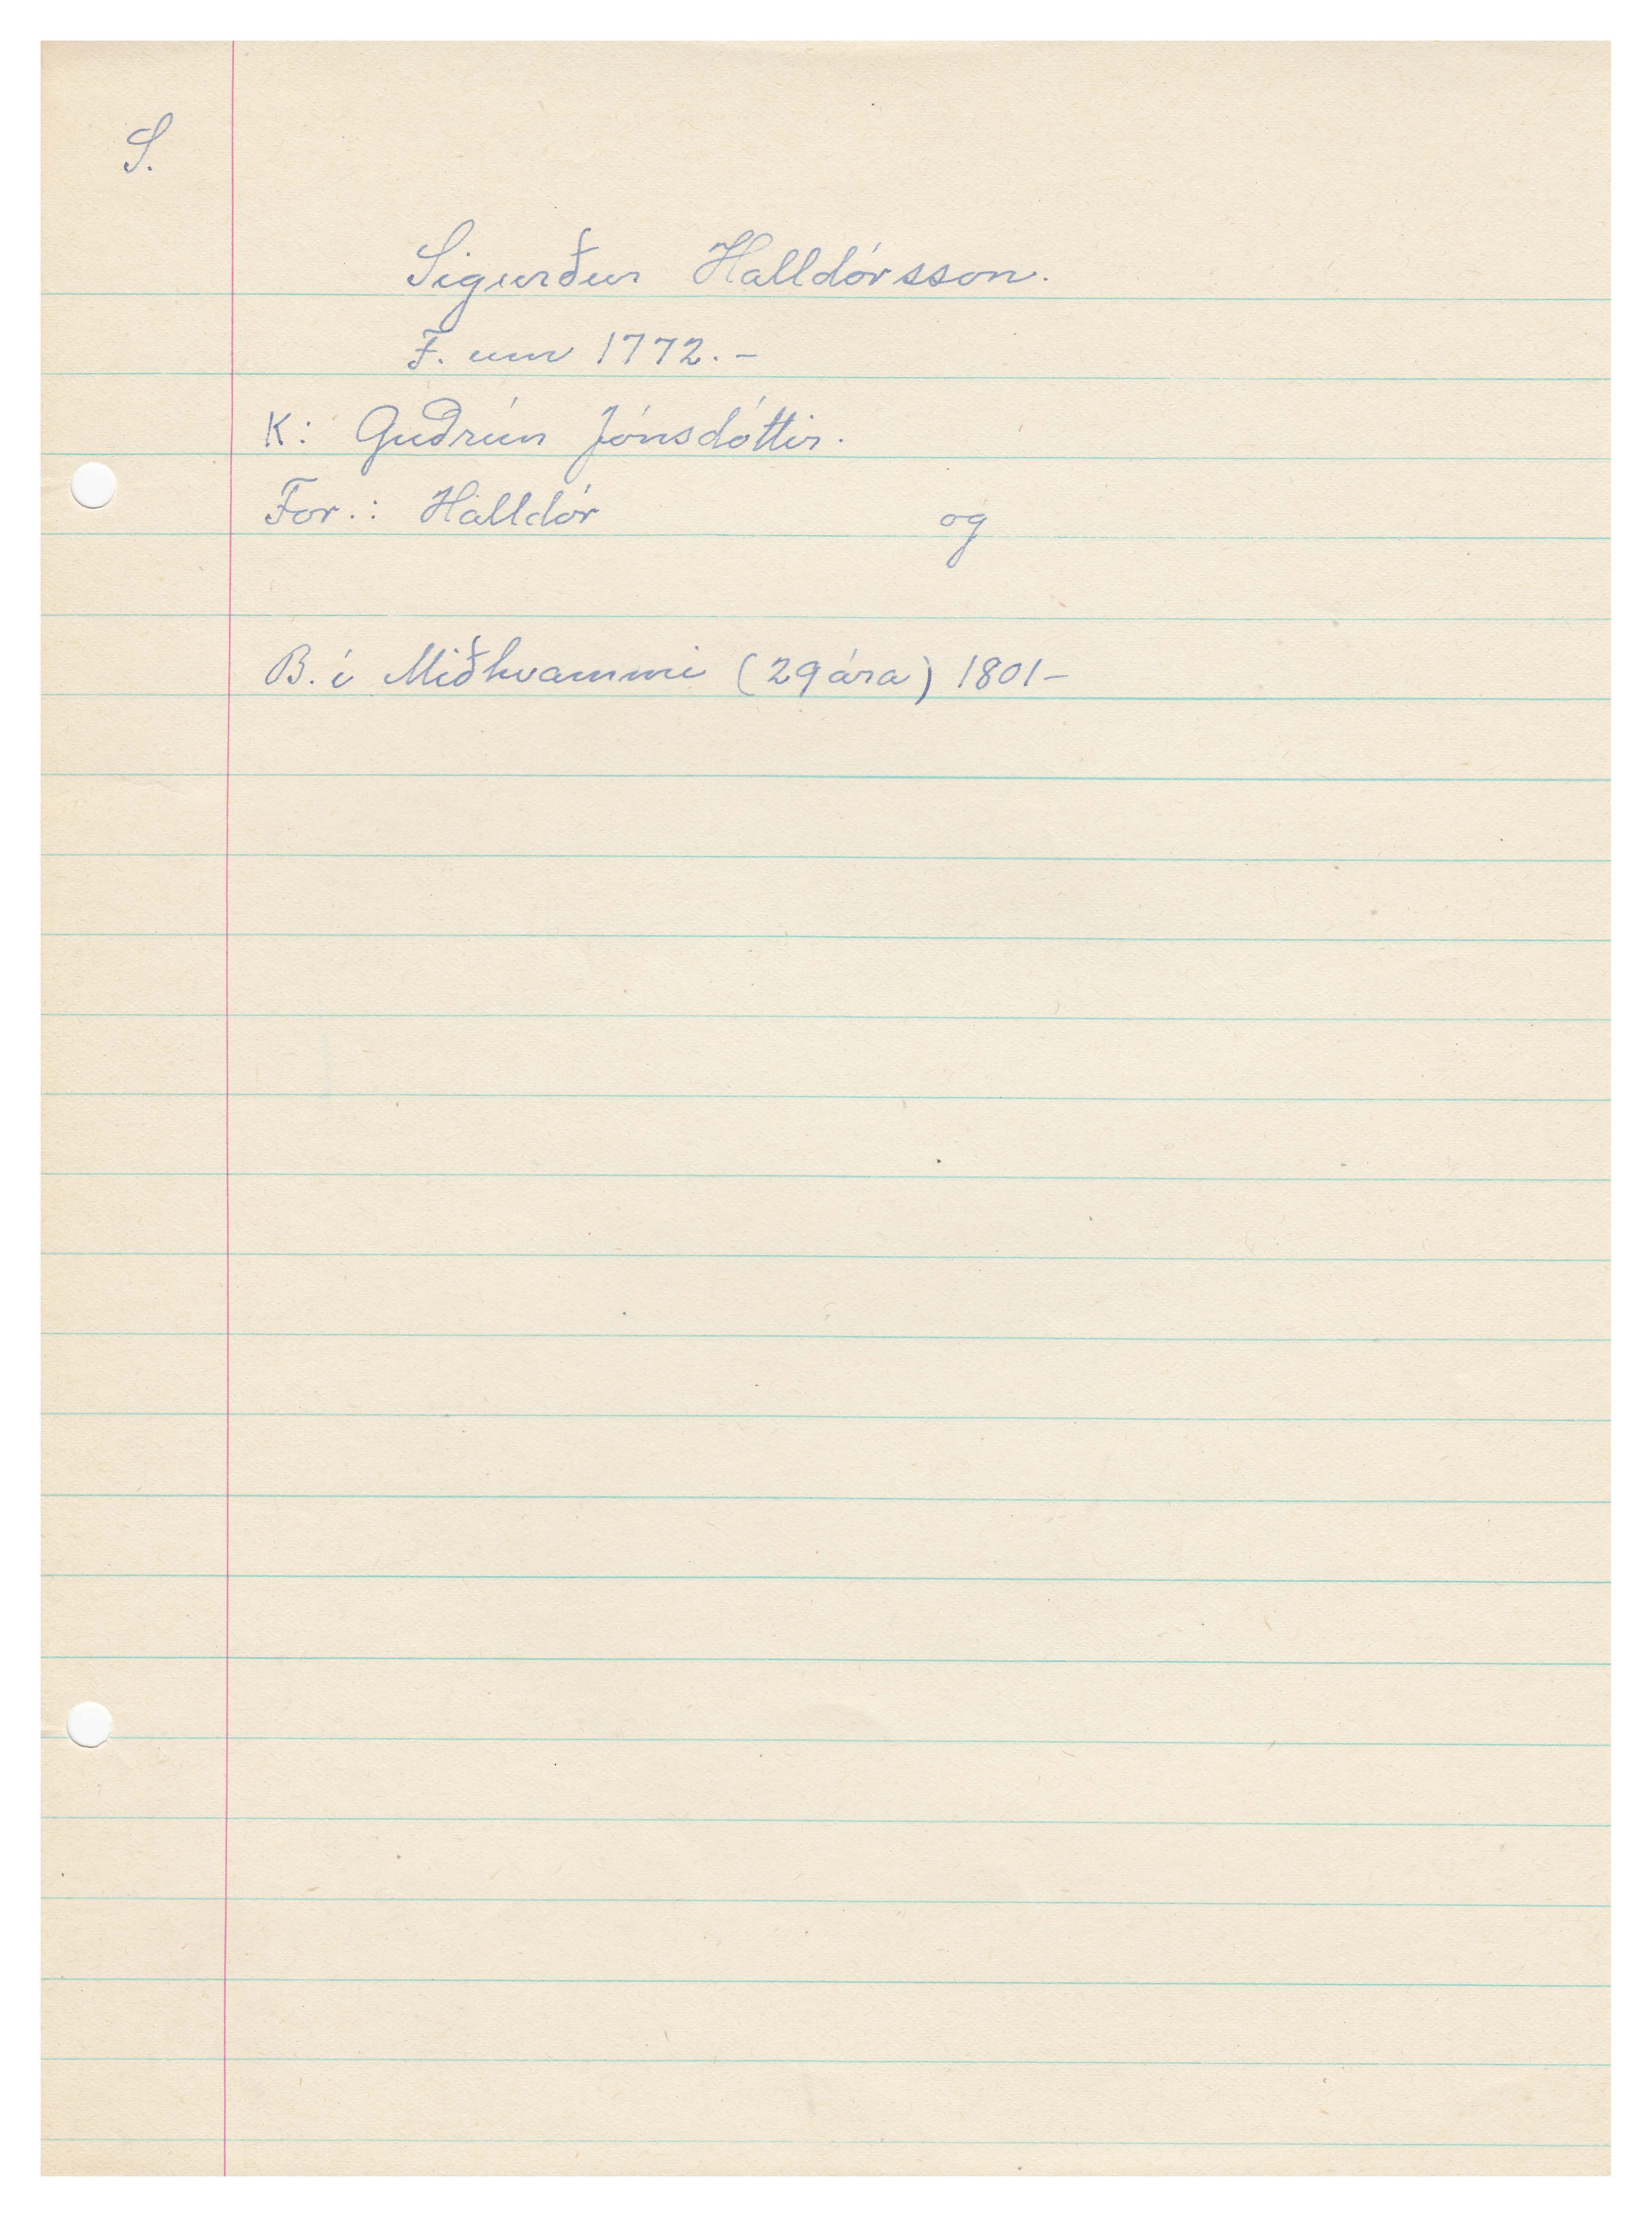 S.
Sigurður Halldórsson.
F. um 1772.-
K: Guðrún Jónsdóttir.
For.: Halldór og
B. í Miðhvammi (29 ára) 1801-